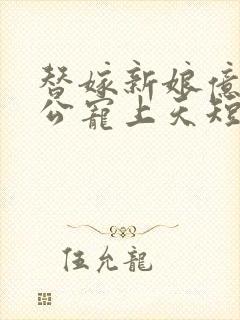 替嫁新娘億
公寵上天短
伍允龍